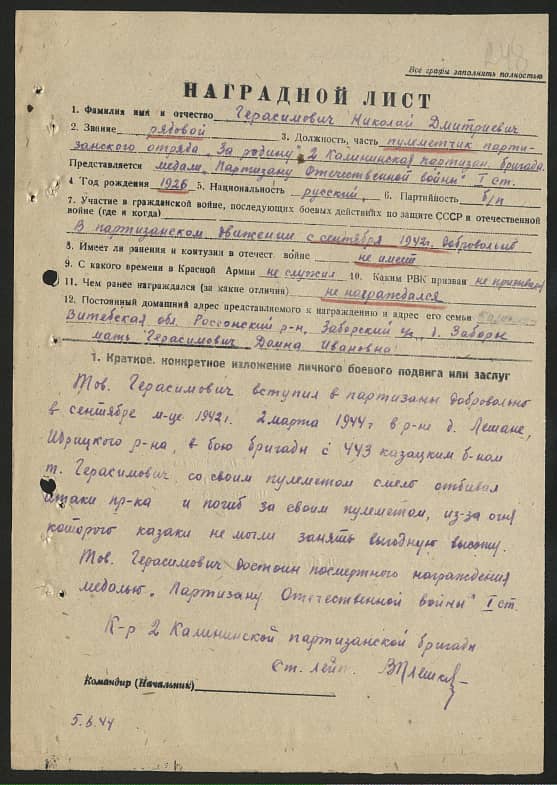 248
Все графы заполнять полностью
НАГРАДНОЙ ЛИСТ
1. Фамилия имя и отчество Герасимович Николай Дмитриевич
2. Звание рядовой 3. Должность, часть пулеметчик парти-
занского отряда „За родину" 2 Калининская партизан. бригада.
Представляется медали „Партизану Отечественной войны" I ст.
4 Год рождения 1926 5. Национальность русский 6. Партийность б/п
7. Участие в гражданской войне, последующих боевых действиях по защите СССР и отечественной
войне (где и когда)
В партизанском движении с сентября 1942г. добровольно
8. Имеет ли ранения и контузии в отечест. войне не имеет
9. С какого времени в Красной Армии не служил 10. Каким РВК призван не призывался
11. Чем ранее награждался (за какие отличия) не награждался
12. Постоянный домашний адрес представляемого к награждению и адрес его семьи
Витебская обл. Россонский р-н, Заборский д. Заборье
мать Герасимович Домна Ивановна
1. Краткое, конкретное изложение личного боевого подвига или заслуг
Тов. Герасимович вступил в партизаны добровольно
в сентябре м-це 1942г. 2 марта 1944г в р-не д. Лешане,
Идрицкого р-на, в бою бригады с 443 казацким б-ном
т. Герасимович, со своим пулеметом смело отбивал
атаки пр-ка и погиб за своим пулеметом, из-за огня
которого казаки не могли занять выгодную высоту.
Тов. Герасимович достоин посмертного награждения
медалью „Партизану Отечественной войны" I ст.
К-р 2 Калининской партизанской бригады
Ст. лейт.
Командир (Начальник)
5.6.44